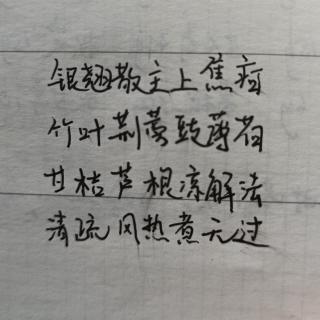 银翘散主上焦疴
竹叶荆蒡豉薄荷
甘桔芦根凉解法
清疏风热煮无过